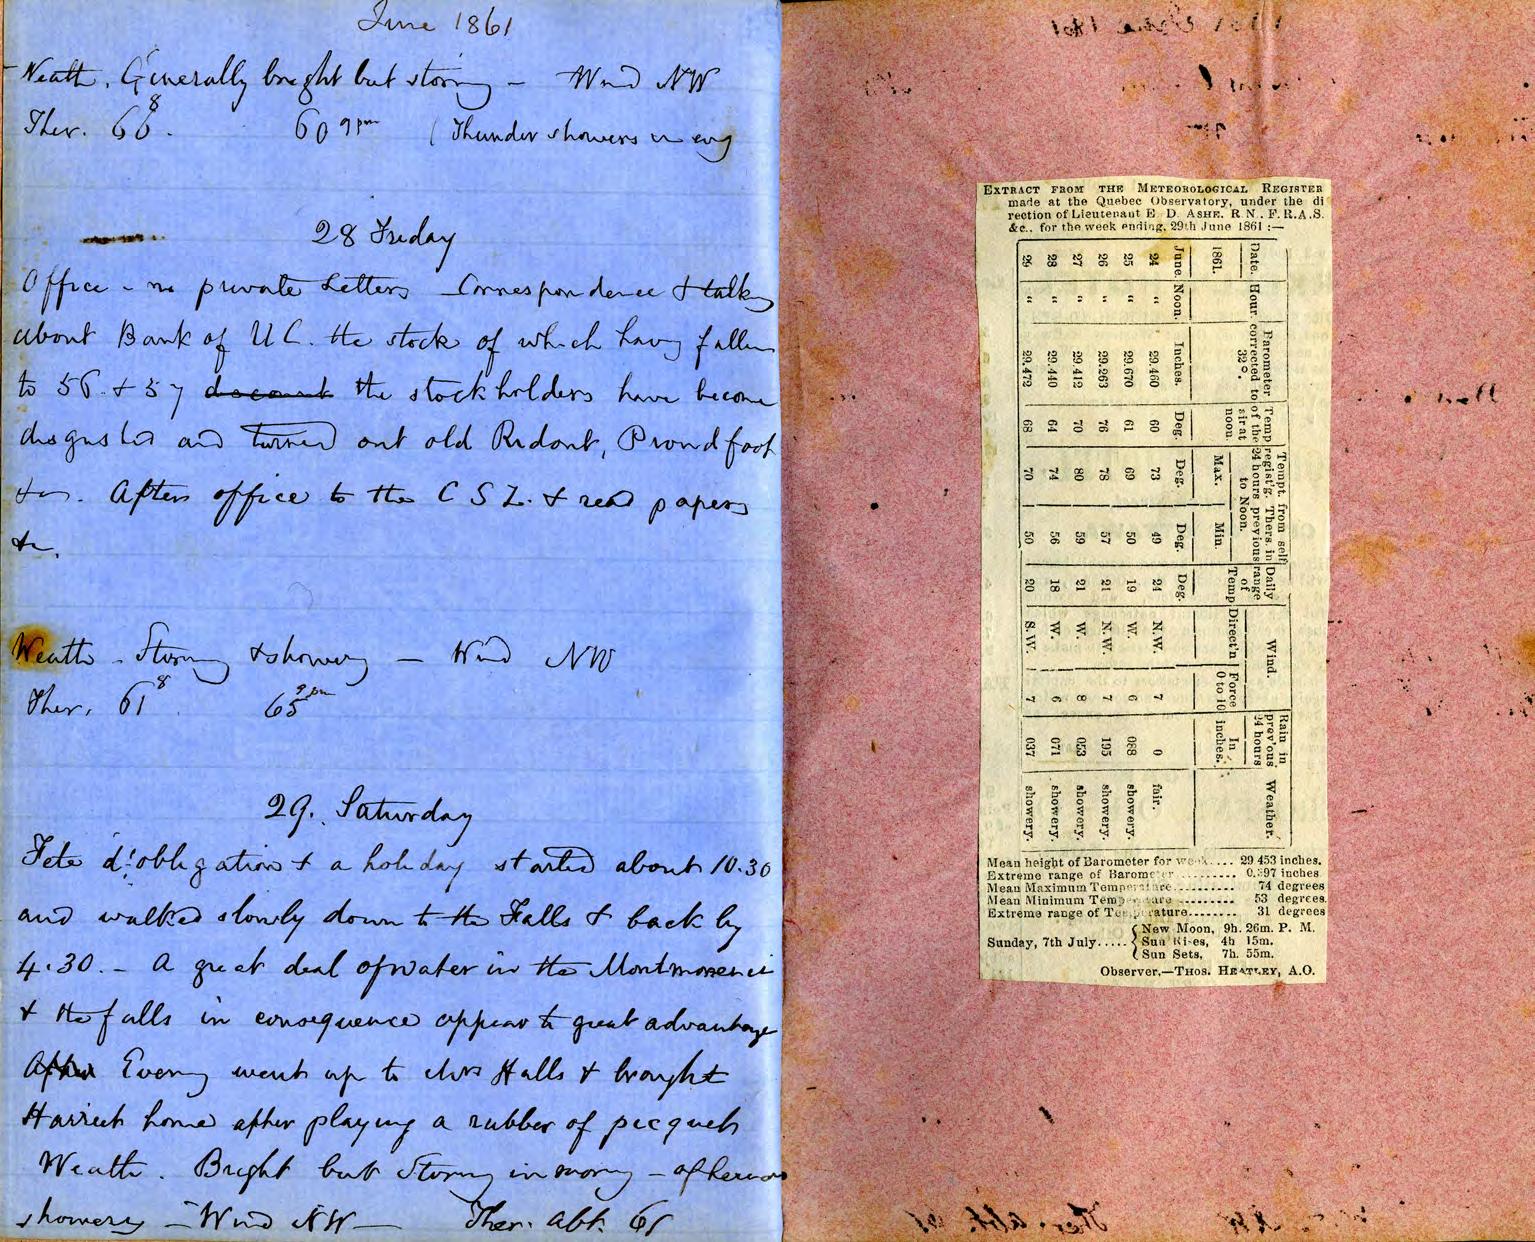 June 1861
Weath. Generally bright but stormy – Wind NW
Ther. 66 8. 60 9 pm (Thunder showers in evg
28 Friday
Office – no private Letters – Correspondence & talking
about Bank of U C. the stock of which having fallen
to 56 & 57 discount the stockholders have become
disgusted and turned out old Ridout, Proudfoot
&c. After office to the C S L. & read papers
&c.
Weath – Stormy & showery – Wind NW
Ther. 61 8. 65 9 pm
29. Saturday
Fete d'obligation & a holiday started about 10.30
and walked slowly down to the Falls & back by
4.30. – A great deal of water in the Montmorenci
& the falls in consequence appear to great advantage
After Eveng went up to Mrs Halls & brought
Harriet home after playing a rubber of picquet
Weath. Bright but Stormy in morng – afternoon
showery – Wind NW – Ther. abt. 61
EXTRACT FROM THE METEOROLOGICAL REGISTER
made at the Quebec Observatory, under the di
rection of Lieutenant E. D. ASHE. R N., F.R.A.S.
&c., for the week ending, 29th June 1861 :—
Date. Hour. Barometer corrected to 32°. Temp of the air at noon. Tempt. from self regist'g. Thers. in 24 hours previous to Noon. Daily range of Temp Wind. Rain in prev'ous 24 hours Weather.
1861. Max. Min. Direct'n Force 0 to 10 In inches.
June. Noon. Inches. Deg. Deg. Deg. Deg.
24 " 29.460 60 73 49 24 N.W. 7 0 fair.
25 " 29.670 61 69 50 19 W. 6 088 showery.
26 " 29.263 76 78 57 21 N.W. 7 195 showery.
27 " 29.412 70 80 59 21 W. 8 053 showery.
28 " 29.440 64 74 56 18 W. 6 071 showery.
29 " 29.472 68 70 50 20 S.W. 7 037 showery.
Mean height of Barometer for week.... 29 453 inches.
Extreme range of Barometer ......... 0.397 inches
Mean Maximum Temperature.......... 74 degrees
Mean Minimum Temperature ......... 53 degrees.
Extreme range of Temperature........ 31 degrees
Sunday, 7th July..... { New Moon, 9h. 26m. P. M.
Sun Rises, 4h 15m.
Sun Sets, 7h. 55m.
Observer.—THOS. HEATLEY, A.O.